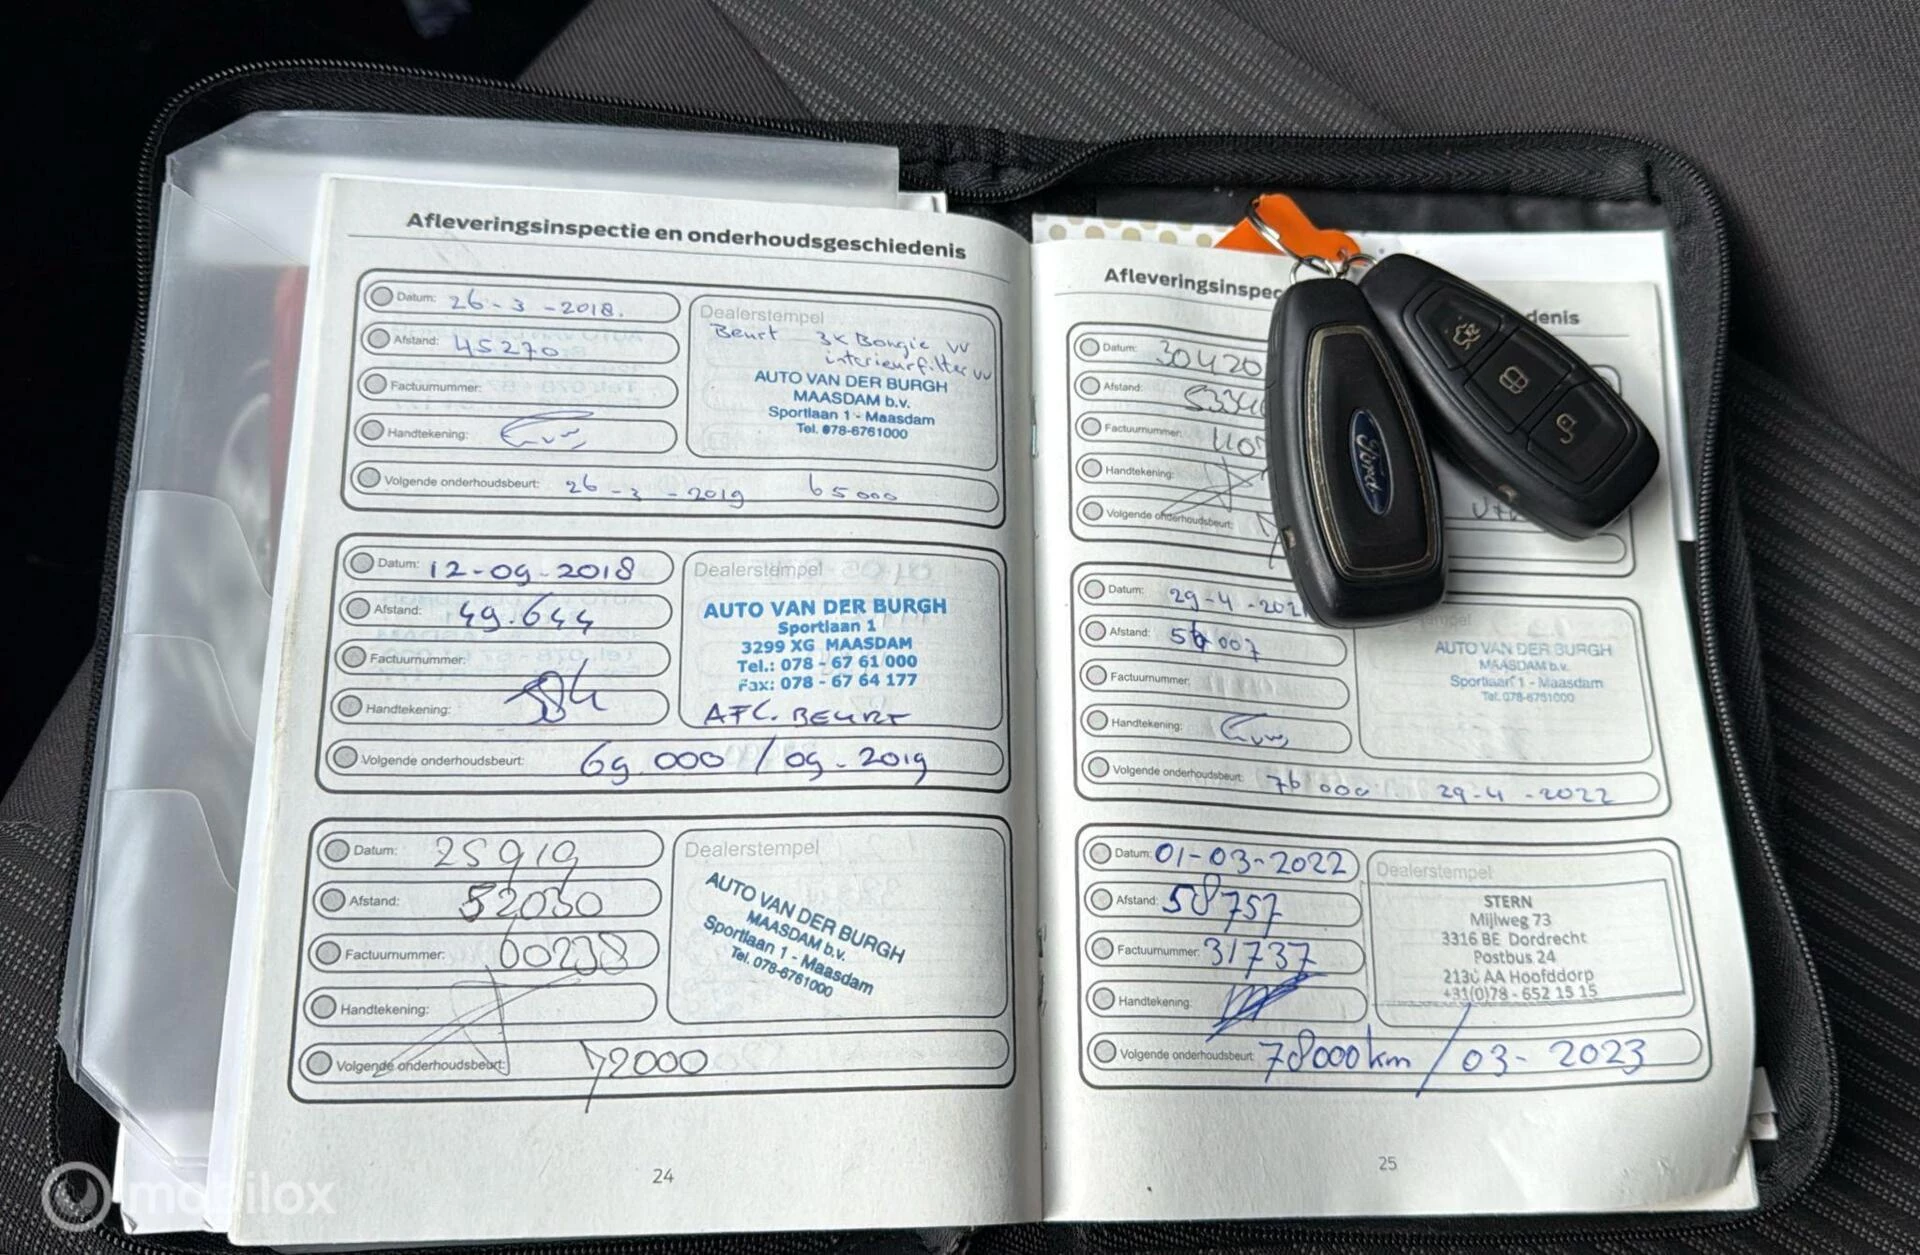 Afleveringsinspectie en onderhoudsgeschiedenis
Datum: 26-3-2018.
Afstand: 45270
Factuurnummer:
Handtekening:
Volgende onderhoudsbeurt: 26-3-2019 65000
Dealerstempel
Beurt 3x Bougie vv
interieurfilter vv
AUTO VAN DER BURGH
MAASDAM b.v.
Sportlaan 1 - Maasdam
Tel. 078-6761000
Datum: 12-09-2018
Afstand: 49.644
Factuurnummer:
Handtekening:
Volgende onderhoudsbeurt: 69.000 / 09-2019
Dealerstempel
AUTO VAN DER BURGH
Sportlaan 1
3299 XG MAASDAM
Tel.: 078 - 67 61 000
Fax: 078 - 67 64 177
AFL. BEURT
Datum: 25919
Afstand: 52030
Factuurnummer: 60238
Handtekening:
Volgende onderhoudsbeurt: 72000
Dealerstempel
AUTO VAN DER BURGH
MAASDAM b.v.
Sportlaan 1 - Maasdam
Tel. 078-6761000
24
Afleveringsinspec
denis
Datum: 30420
Afstand:
Factuurnummer:
Handtekening:
Volgende onderhoudsbeurt:
Ford
Datum: 29-4-2021
Afstand: 56007
Factuurnummer:
Handtekening:
Volgende onderhoudsbeurt: 76000 29-4-2022
AUTO VAN DER BURGH
MAASDAM b.v.
Sportlaan 1 - Maasdam
Tel. 078-6761000
Datum: 01-03-2022
Afstand: 58757
Factuurnummer: 31737
Handtekening:
Volgende onderhoudsbeurt: 78000km / 03-2023
Dealerstempel
STERN
Mijlweg 73
3316 BE Dordrecht
Postbus 24
2130 AA Hoofddorp
+31(0)78 - 652 15 15
25
mobilox